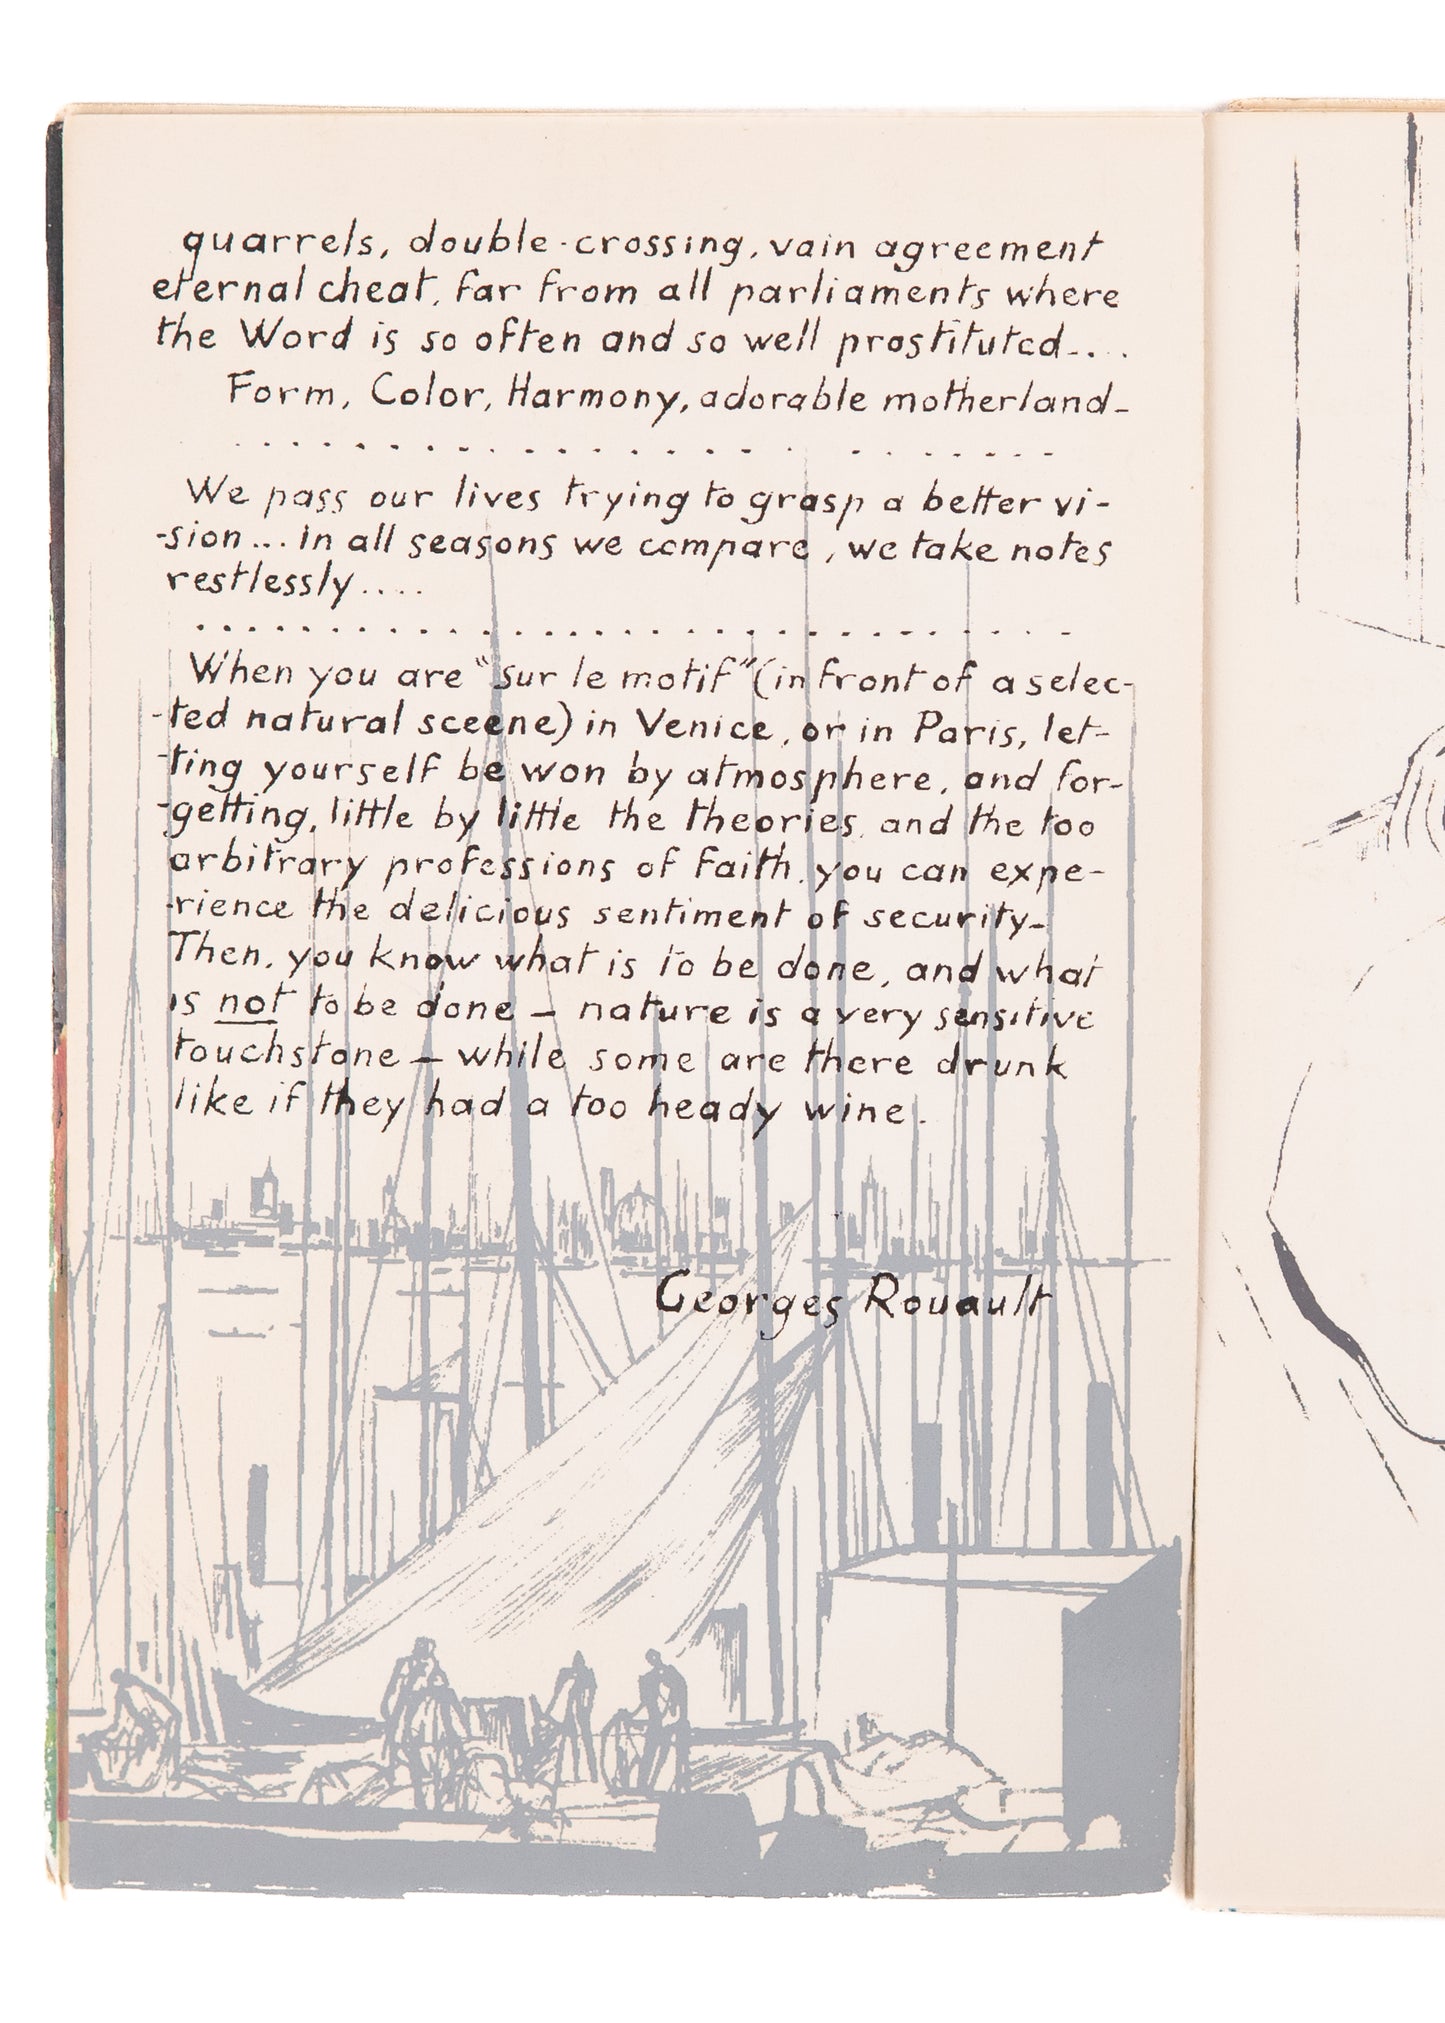 quarrels, double-crossing, vain agreement
eternal cheat, far from all parliaments where
the Word is so often and so well prostituted....
Form, Color, Harmony, adorable motherland-
. . . . . . . . . . . . . . . . . . . . . . . . . .
We pass our lives trying to grasp a better vi-
-sion... in all seasons we compare, we take notes
restlessly....
. . . . . . . . . . . . . . . . . . . . . . . . . . . . . . . . .
When you are "sur le motif" (in front of a selec-
-ted natural sceene) in Venice, or in Paris, let-
-ting yourself be won by atmosphere, and for-
-getting, little by little the theories, and the too
arbitrary professions of faith, you can expe-
-rience the delicious sentiment of security-
Then, you know what is to be done, and what
is not to be done — nature is a very sensitive
touchstone — while some are there drunk
like if they had a too heady wine.
Georges Rouault